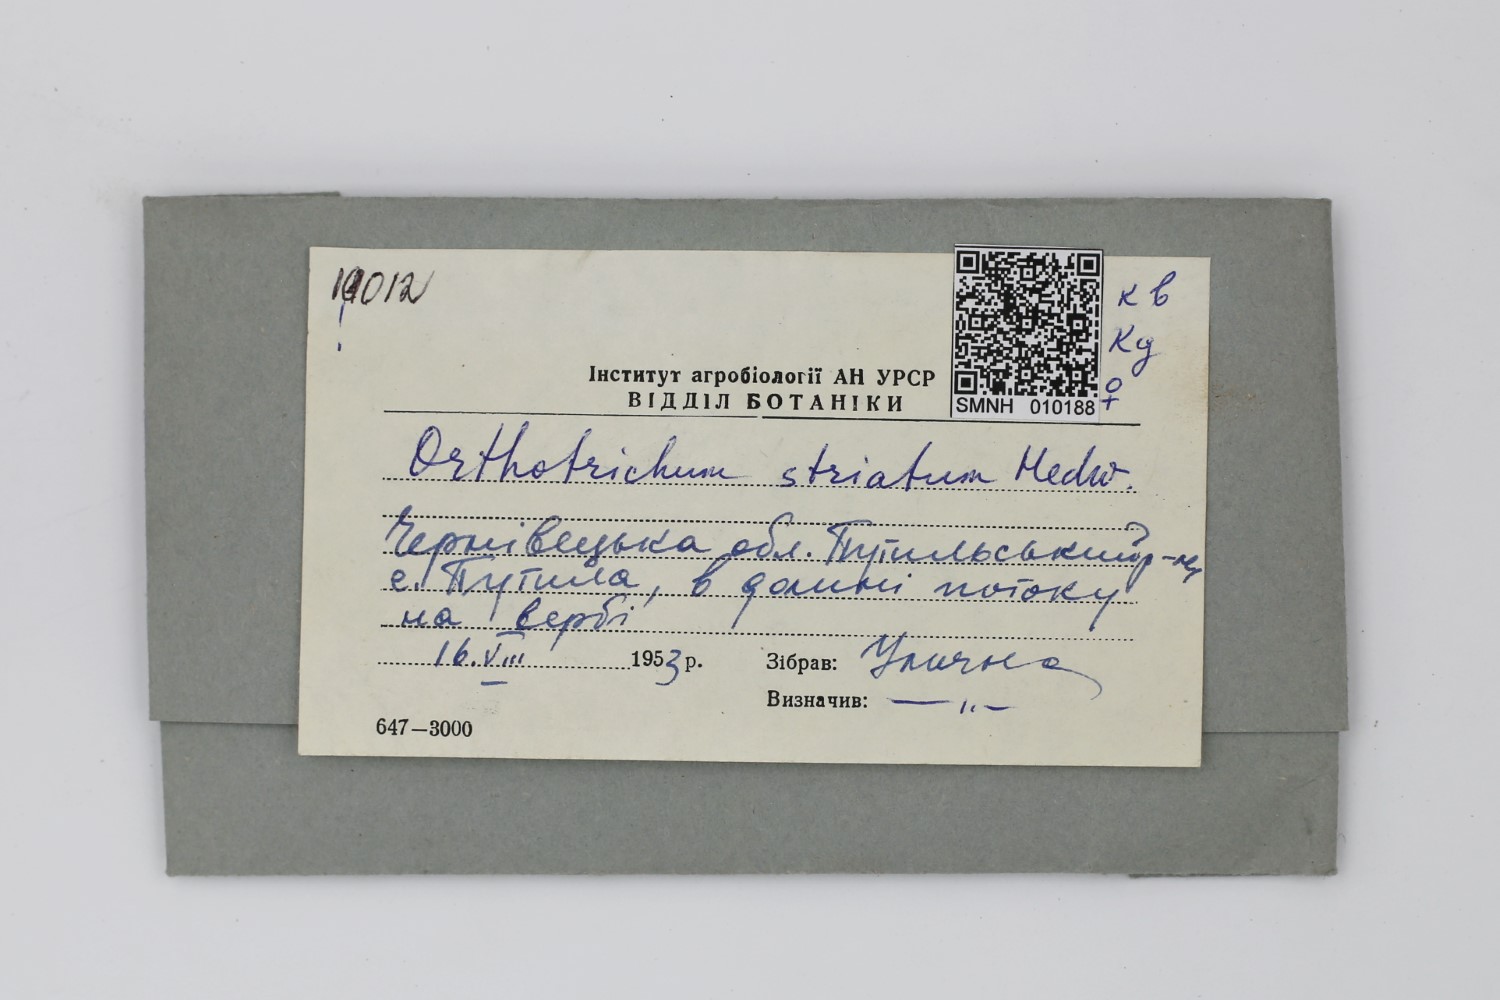 10012
!
кв
Кд
Інститут агробіології АН УРСР
ВІДДІЛ БОТАНІКИ
SMNH 010188
Orthotrichum striatum Hedw.
Чернівецька обл. Путильський р-н,
с. Путила, в долині потоку
на вербі
16.VIII 1953 р.
Зібрав: Улична
Визначив: —"—
647—3000